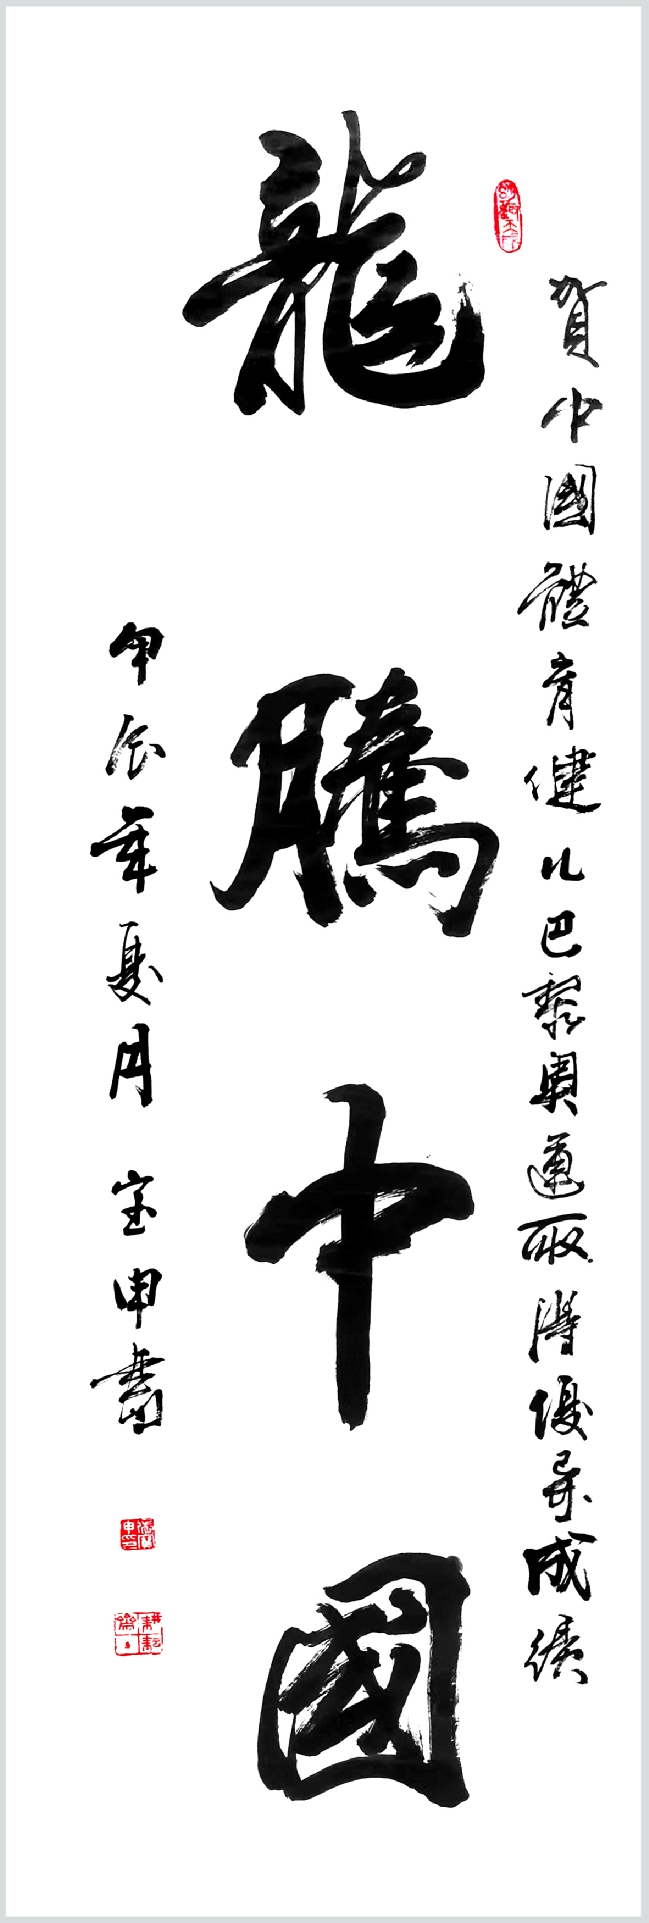 賀中國體育健儿巴黎奧運取得優异成績
龍騰中國
甲辰年夏月 宝申書